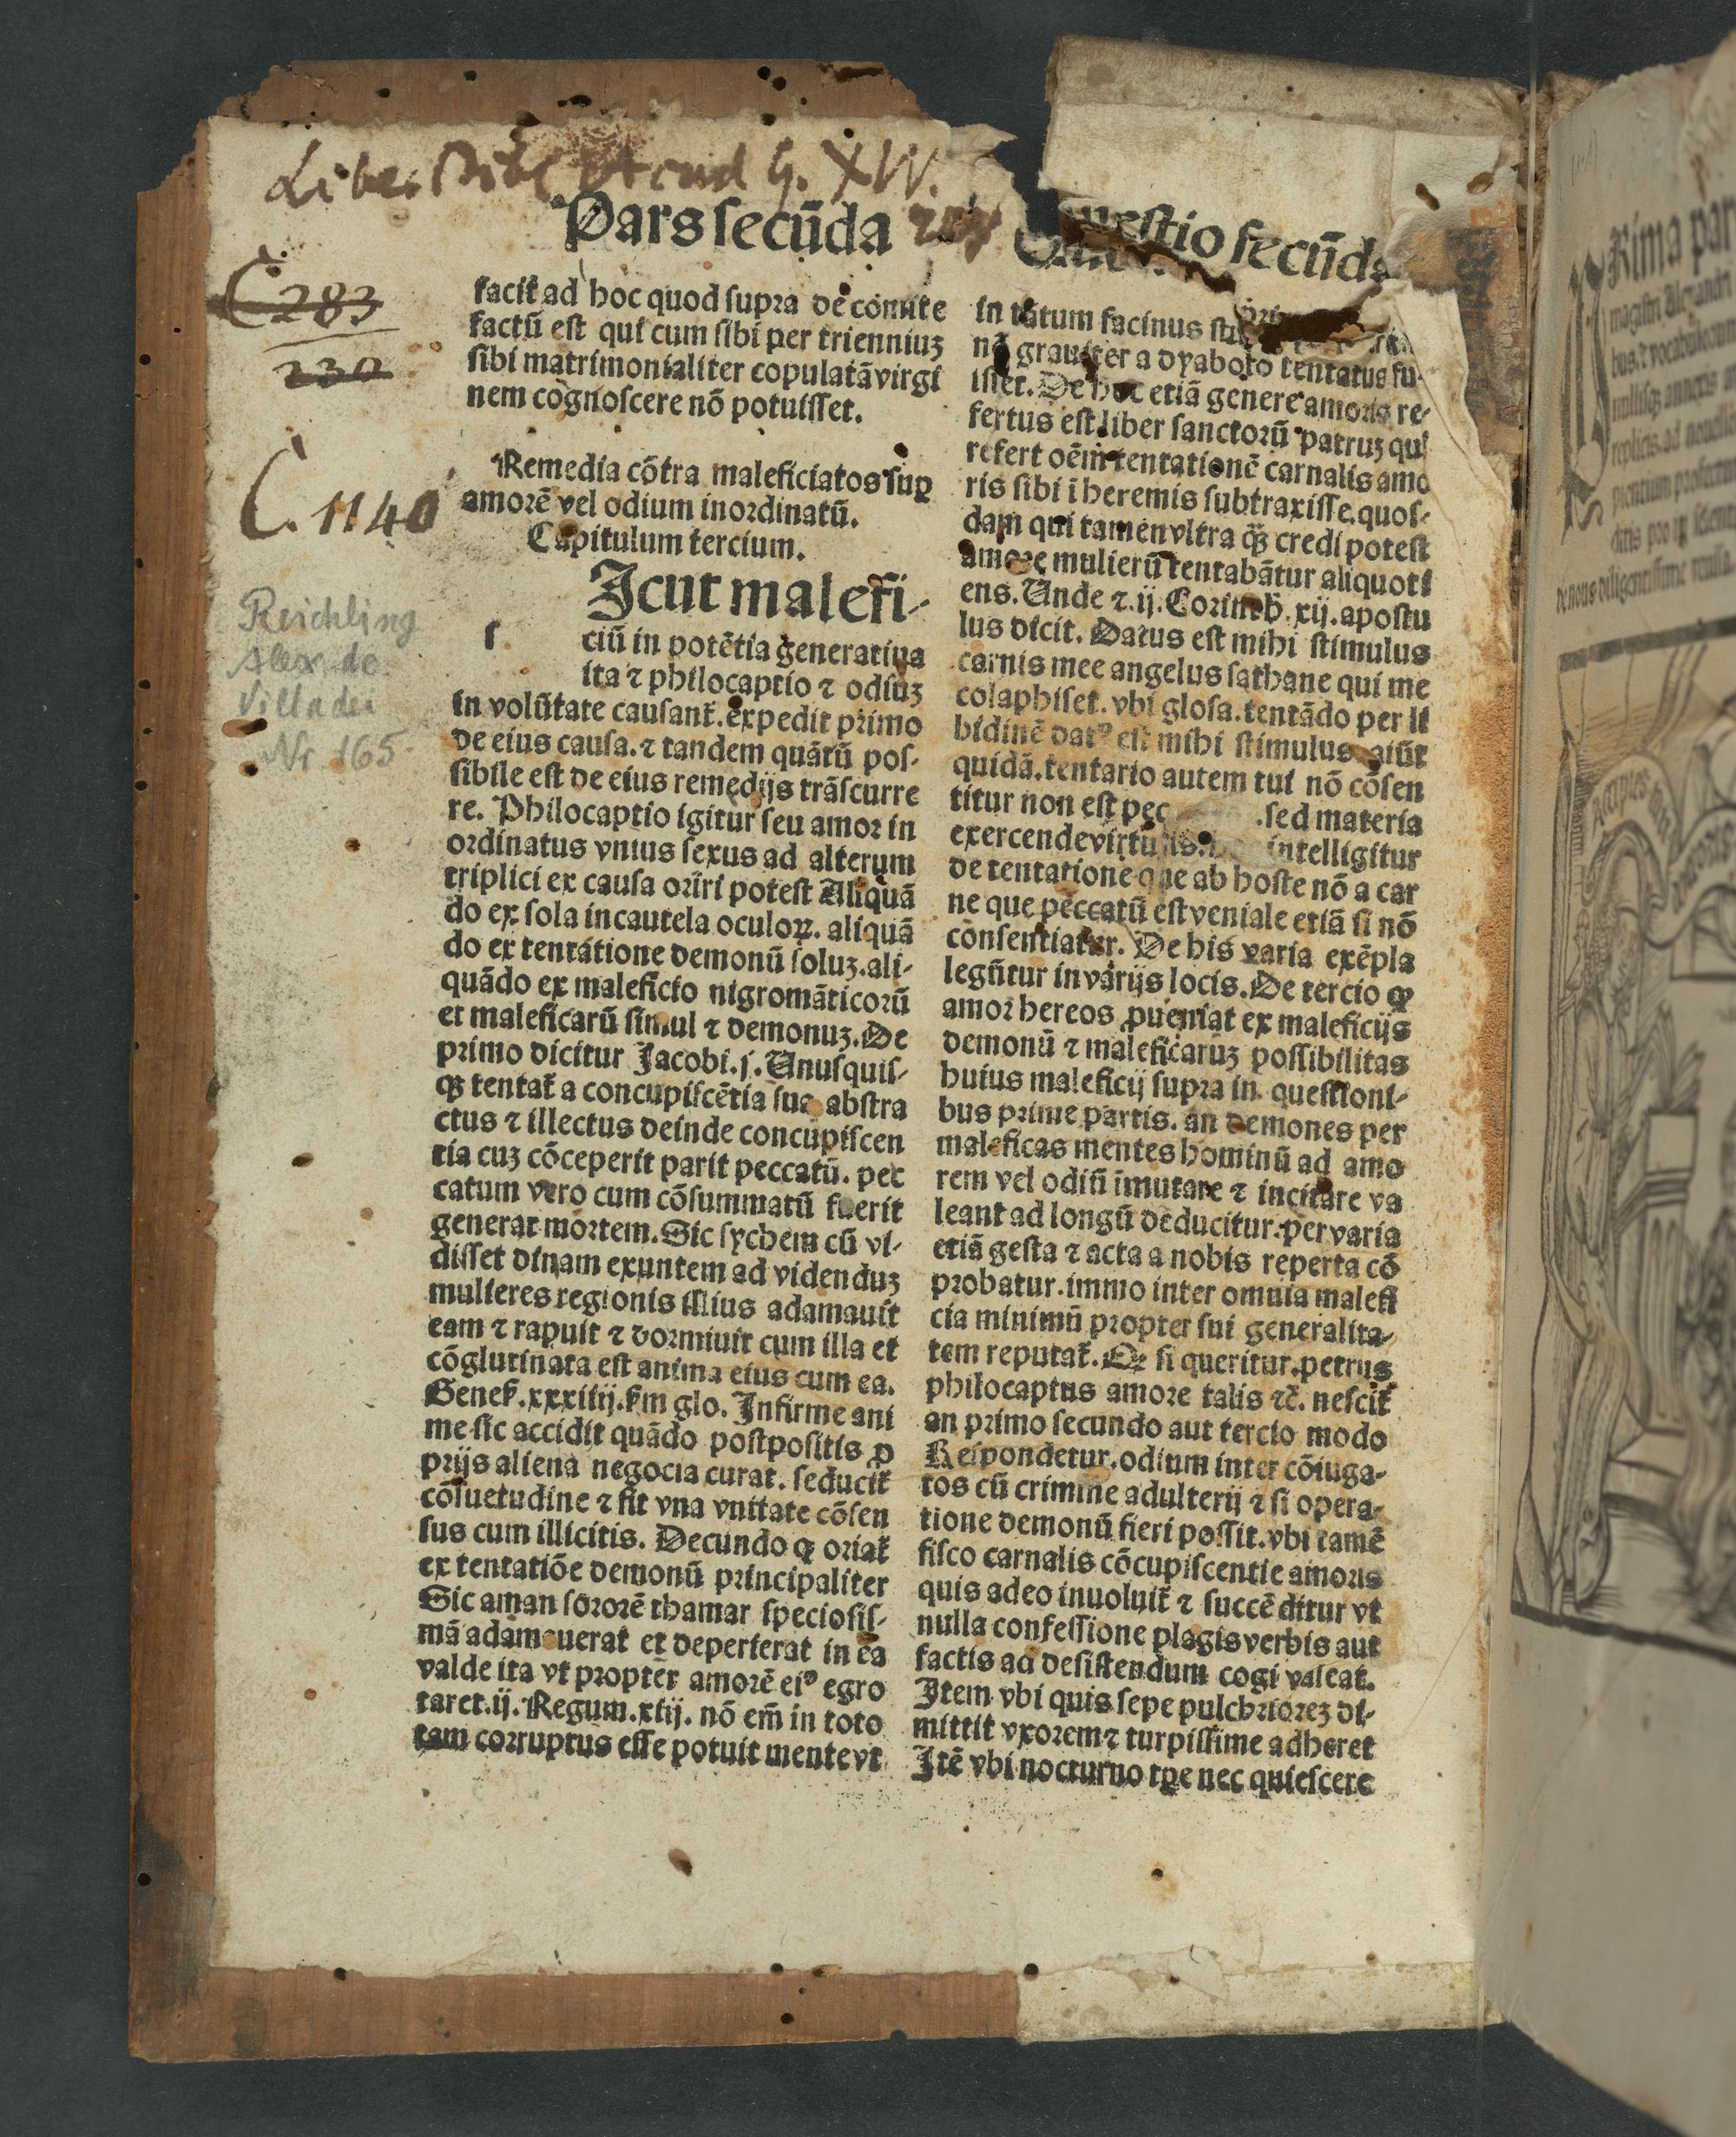 Pars secūda
Questio secūda
C 283
230
C. 1140
Reichling
Alex. de
Villa dei
Nr. 165.
facit̃ ad hoc quod supra de comite
factū est qui cum sibi per trienniuꝫ
sibi matrimonialiter copulatā virgi
nem cognoscere nō potuisset.
Remedia cōtra maleficiatos suꝑ
amorē vel odium inordinatū.
Capitulum tercium.
Icut malefi-
s
ciū in potētia generatiua
ita ⁊ philocaptio ⁊ odiuꝫ
in volūtate causant̃. expedit primo
de eius causa. ⁊ tandem quātū pos-
sibile est de eius remedijs trāscurre
re. Philocaptio igitur seu amor in
ordinatus vnius sexus ad alterum
triplici ex causa oriri potest Aliquā
do ex sola incautela oculoꝝ. aliquā
do ex tentatione demonū soluꝫ. ali-
quādo ex maleficio nigromāticorū
et maleficarū simul ⁊ demonuꝫ. De
primo dicitur Jacobi. j. Unusquis-
qꝫ tentat̃ a concupiscētia sua abstra
ctus ⁊ illectus deinde concupiscen
tia cuꝫ cōceperit parit peccatū. pec
catum vero cum cōsummatū fuerit
generat mortem. Sic sychem cū vi-
disset dinam exuntem ad videnduꝫ
mulieres regionis illius adamauit
eam ⁊ rapuit ⁊ dormiuit cum illa et
cōglutinata est anima eius cum ea.
Genes̃. xxxiiij. s̃m glo. Infirme ani
me sic accidit quādo postpositis ꝓ
prijs aliena negocia curat. seducit̃
cōsuetudine ⁊ fit vna vnitate cōsen
sus cum illicitis. Decundo ꝙ oriat̃
ex tentatiōe demonū principaliter
Sic aman sororē thamar speciosis-
mā adamauerat et deperierat in ea
valde ita vt propter amorē eiꝰ egro
taret. ij. Regum. xiij. nō em̄ in toto
tam corruptus esse potuit mente vt
in tātum facinus
nō grauiter a dyabolo tentatus fu-
isset. De hoc etiā genere amoris re-
fertus est liber sanctorū patruꝫ qui
refert oēm tentationē carnalis amo
ris sibi ī heremis subtraxisse. quos-
dam qui tamen vltra q̃ꝫ credi potest
amore mulierū tentabātur aliquoti
ens. Unde ⁊. ij. Corinth̃. xij. apostu
lus dicit. Datus est mihi stimulus
carnis mee angelus sathane qui me
colaphiset. vbi glosa. tentādo per li
bidinē datꝰ est mihi stimulus aiūt
quidā. tentatio autem tui nō cōsen
titur non est pec .sed materia
exercende virtutis. intelligitur
de tentatione que ab hoste nō a car
ne que peccatū est veniale etiā si nō
cōnsentiatur. De his varia exēpla
legūtur in varijs locis. De tercio ꝙ
amor hereos ꝓueniat ex maleficijs
demonū ⁊ maleficaruꝫ possibilitas
huius maleficij supra in questioni-
bus prime partis. an demones per
maleficas mentes hominū ad amo
rem vel odiū īmutare ⁊ incitare va
leant ad longū deducitur. per varia
etiā gesta ⁊ acta a nobis reperta cō
probatur. immo inter omnia malefi
cia minimū propter sui generalita-
tem reputat̃. Qr si queritur. petrus
philocaptus amore talis ⁊c̃. nescit̃
an primo secundo aut tercio modo
Respondetur. odium inter cōiuga-
tos cū crimine adulterij ⁊ si opera-
tione demonū fieri possit. vbi tamē
fisco carnalis cōcupiscentie amoris
quis adeo inuoluit̃ ⁊ succēditur vt
nulla confessione plagis verbis aut
factis ad desistendum cogi valeat.
Item vbi quis sepe pulchrioreꝫ di-
mittit vxorem ⁊ turpissime adheret
Itē vbi nocturno tꝑe nec quiescere
Rima par
magistri Alexandri